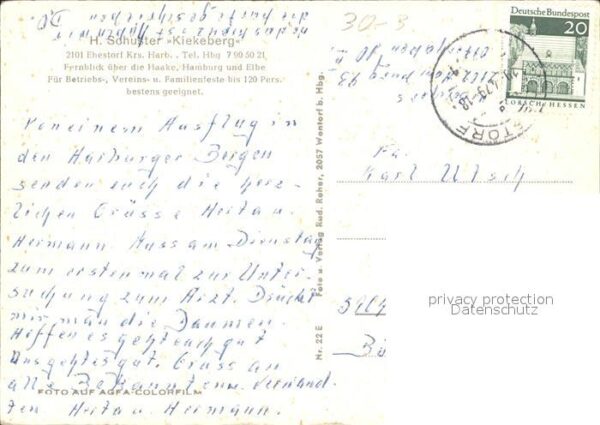 H. Schuster »Kiekeberg«
2101 Ehestorf Krs. Harb. . Tel. Hbg 7 90 50 21
Fernblick über die Haake, Hamburg und Elbe
Für Betriebs-, Vereins- u. Familienfeste bis 120 Pers.
bestens geeignet.
30-3
Deutsche Bundespost
20
LORSCH/HESSEN
Von einem Ausflug in
den Harburger Bergen
senden euch die herz-
lichen Grüsse Herta u.
Hermann. Muss am Dienstag
zum ersten mal zur Unter-
suchung zum Arzt. Drückt
mir man die Daumen.
Hoffen es geht euch gut
uns geht es gut. Gruss an
alle Bekannten u. Verwand
ten. Herta u. Hermann.
FOTO AUF AGFA-COLORFILM
Nr. 22 E
Foto u. Verlag Rud. Reher, 2057 Wentorf b. Hbg.
Karl Ulsch
privacy protection
Datenschutz